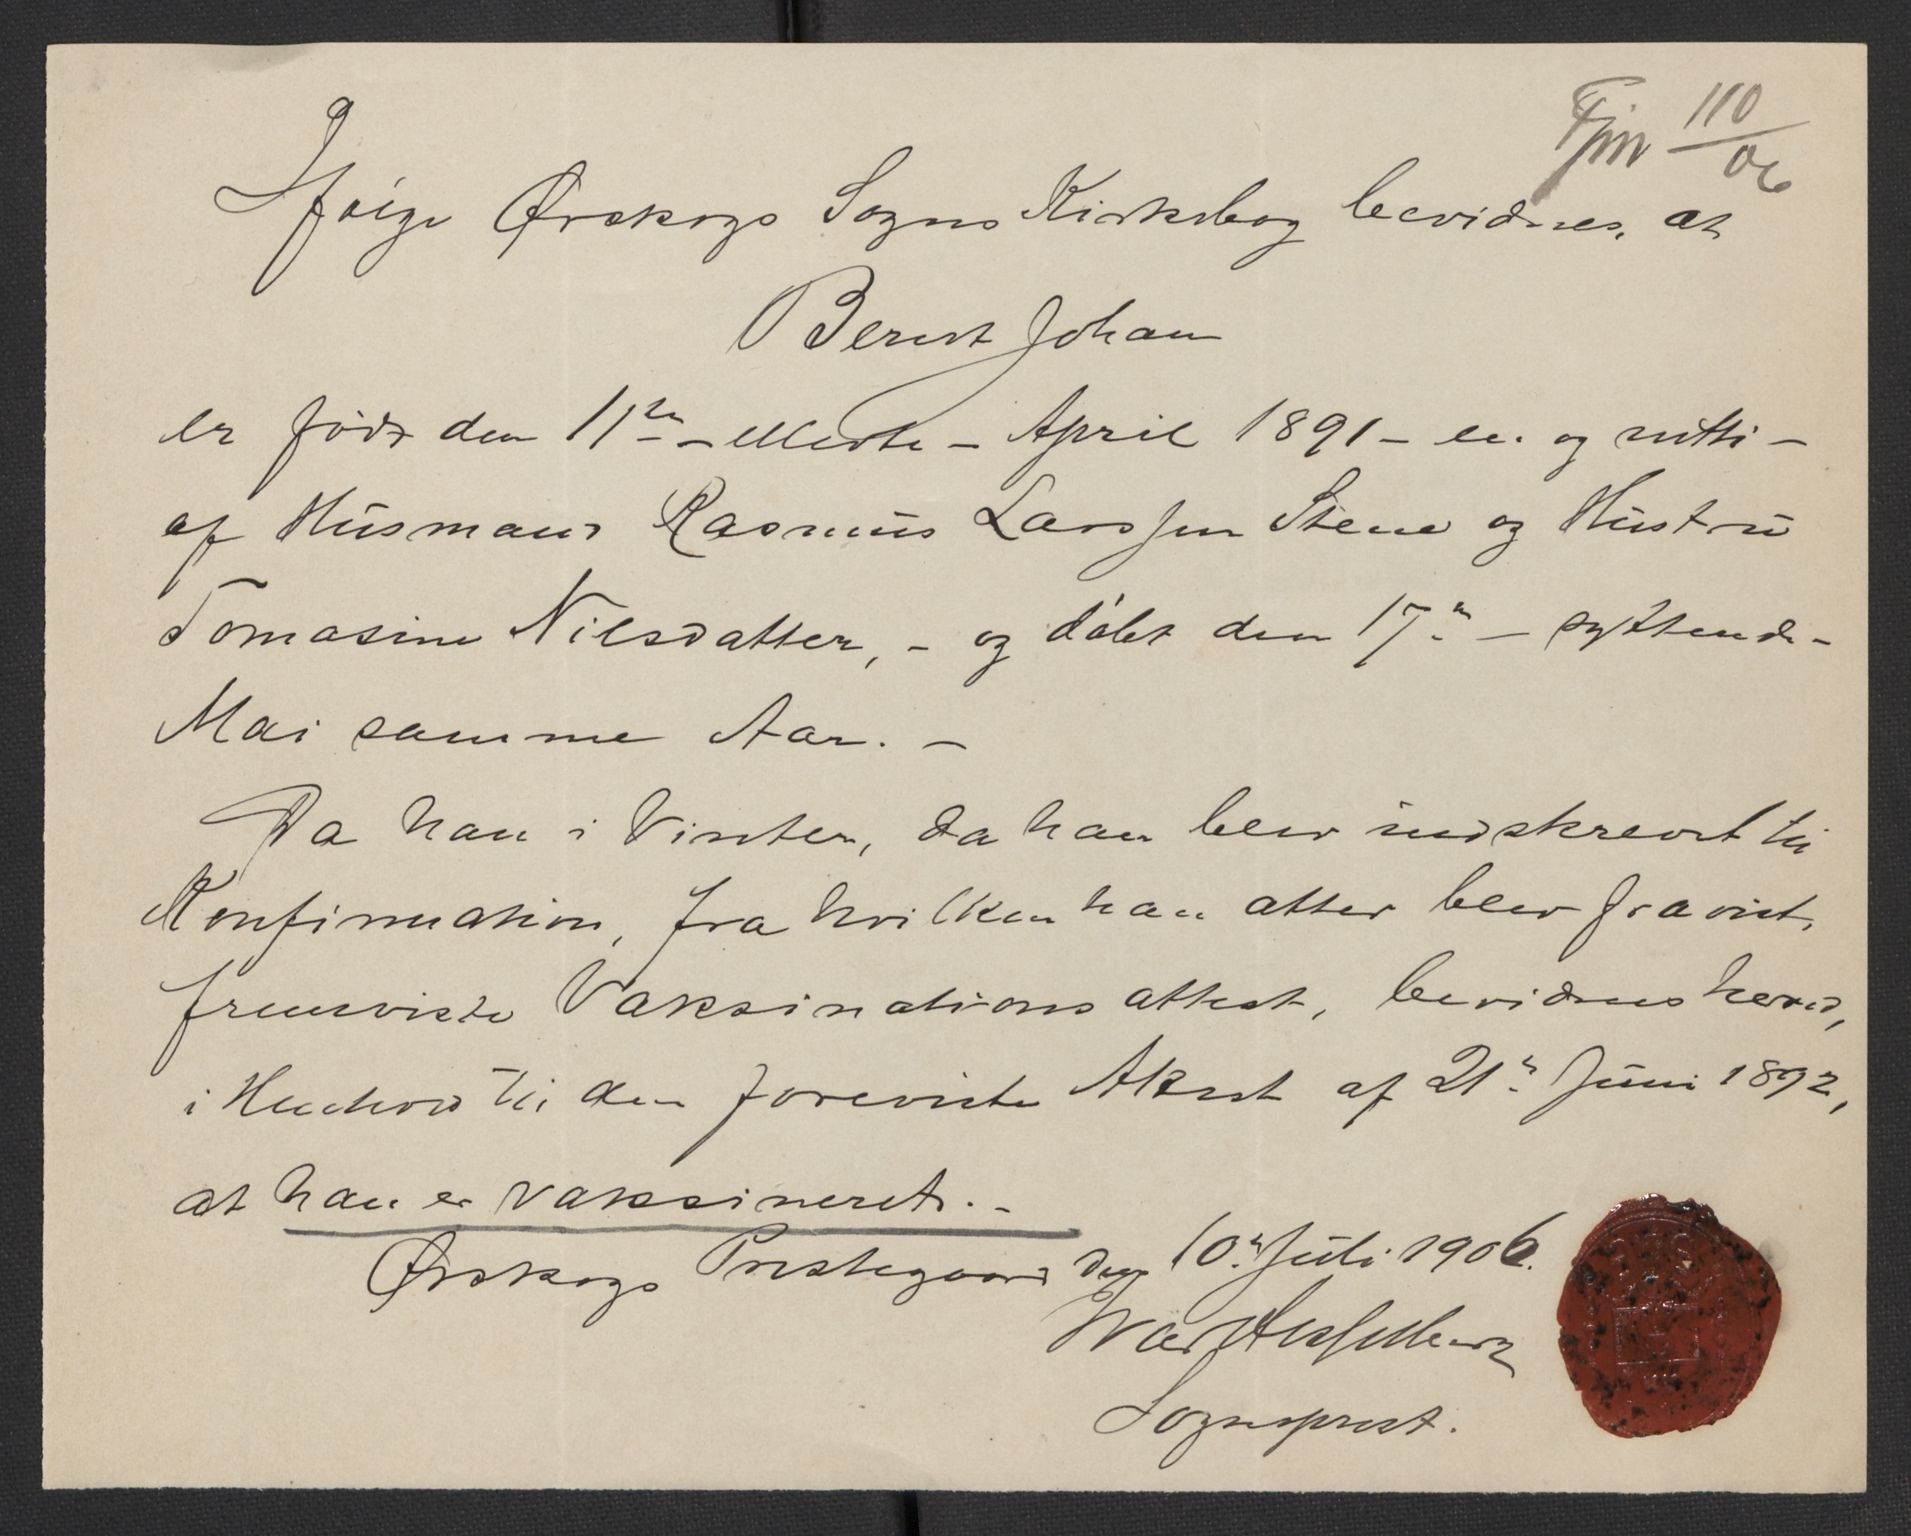 Fjm 110/06
Ifølge Ørskogs Sogns Kirkebog bevidnes, at
Bernt Johan
er født den 11te – ellevte – April 1891 – en og nitti –
af Husmand Rasmus Larssen Stene og Hustru
Tomasine Nilsdatter, – og døbt den 17de – syttende –
Mai samme Aar. –
Da han i Vinter, da han blev indskrevet til
Konfirmation, fra hvilken han atter blev fravist,
fremviste Vaksinationsattest, bevidnes herved,
i Henhold til den foreviste Attest af 21de Juni 1892,
at han er vaksineret. –
Ørskogs Prestegaard den 10de Juli 1906.
Ivar Hesselberg
Sogneprest.